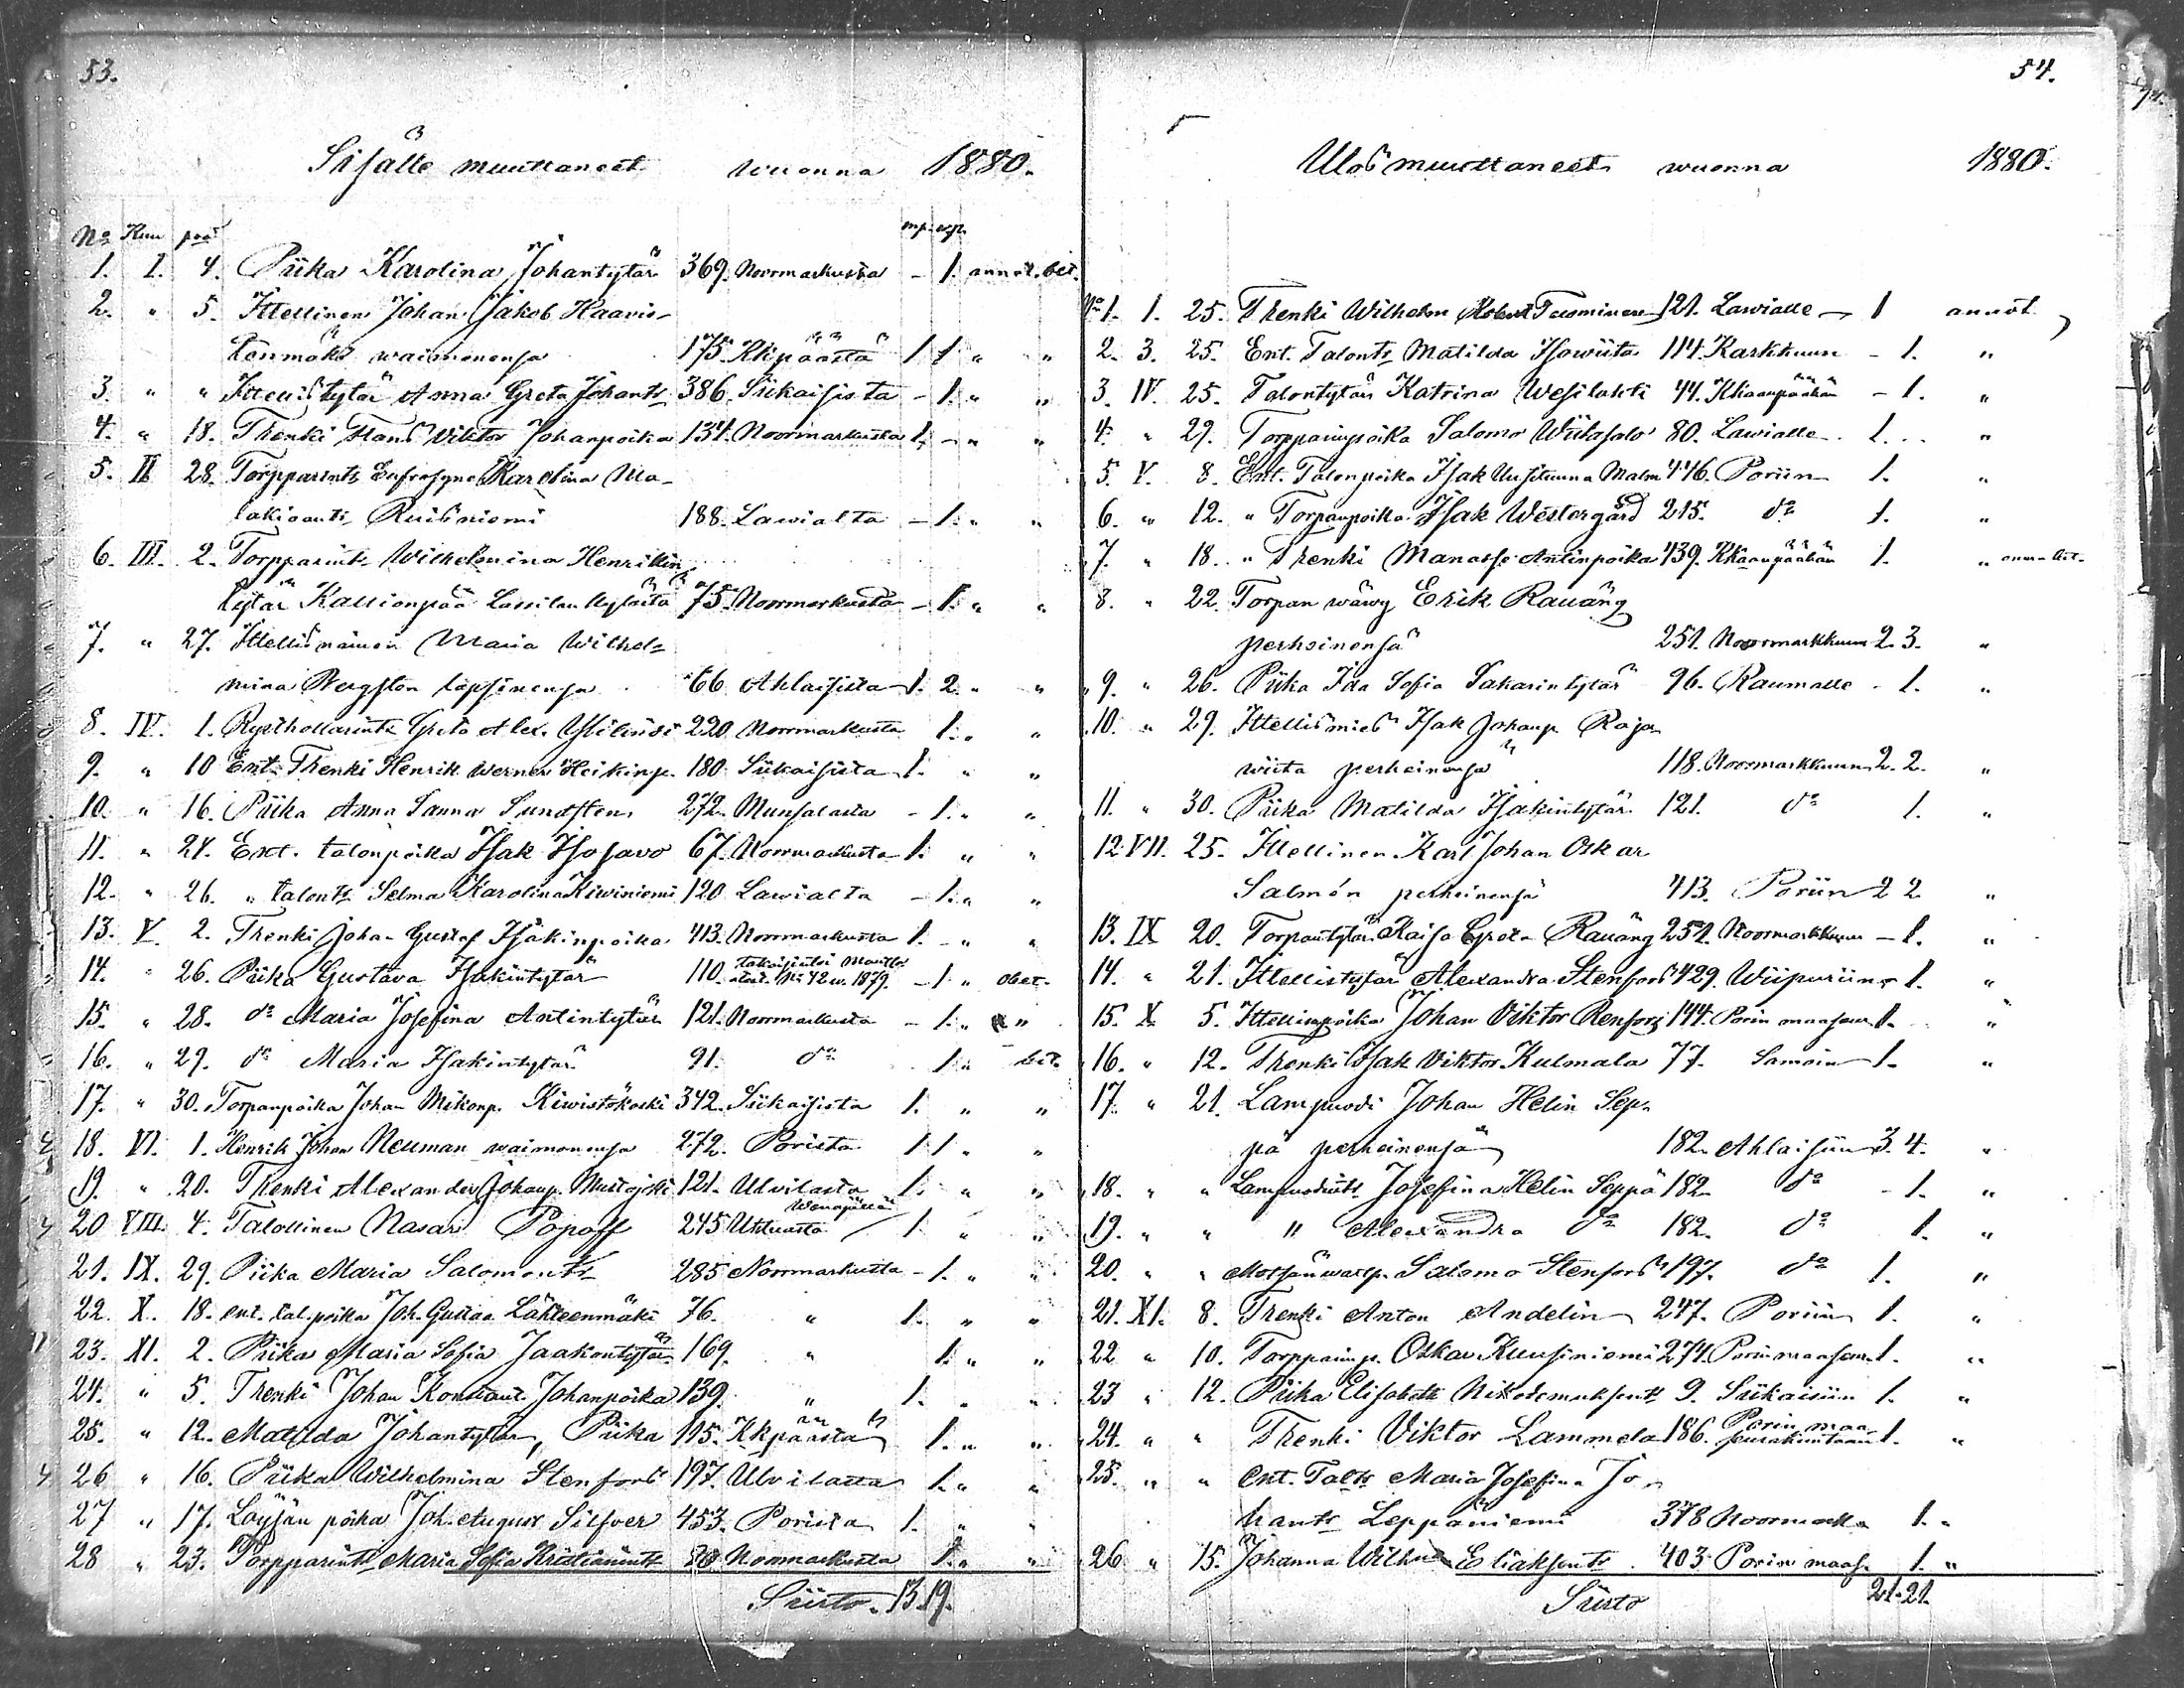 53.
Sisälle muuttaneet wuonna 1880.
No Kuu pvä mp. wp.
1. I. 4. Piika Karolina Johantytär 369. Noormarkusta - 1. annot. bet.
2. " 5. Itellinen Johan Jakob Haavis-
tonmäki waimonensa 175. Kkpäästä 1 1 " "
3. " " Itellistytär Anna Greta Johantr 386. Siikaisista - 1. " "
4. " 18. Trenki Frans Viktor Johanpoika 134. Noormarkusta 1. - " "
5. II 28. Torpparintr Eufrosyne Karolina Ma-
lakiantr Ruisniemi 188. Lawialta - 1. " "
6. III. 2. Torpparintr Wilhelmina Henrikin
tytär Kallionpää Lassilan kylästä 75. Noormarkusta - 1. " "
7. " 27. Itellisnainen Maria Wilhel-
mina Bergsten lapsinensa 66 Ahlaisista 1. 2. " "
8. IV. 1. Rysthollarintr Greta Alex. Yliliuisi 220 Noormarkusta 1. " "
9. " 10 Ent. Trenki Henrik Werner Heikinp. 180 Siikaisista 1. " "
10. " 16. Piika Anna Sanna Sundsten 272. Munsalasta - 1. " "
11. " 24. Ent. talonpoika Isak Isosavo 67. Noormarkusta 1. " "
12. " 26. " talontr Selma Karolina Kiwiniemi 120 Lawialta - 1. " "
13. V. 2. Trenki Johan Gustaf Isakinpoika 413. Noormarkusta 1. - " "
14. " 26. Piika Gustava Isakintytär 110. - 1 " obet.
15. " 28. do Maria Josefina Antintytär 121. Noormarkusta - 1. " "
16. " 29. do Maria Isakintytär 91. do 1. " bet.
17. " 30. Torpanpoika Johan Mikonp. Kiwistökoski 342. Siikaisista 1. " "
18. VI. 1. Henrik Johan Neuman waimonensa 272. Porista 1 1 " "
19. " 20. Trenki Alexander Johanp. Mustajoki 121. Ulvilasta 1. " "
Wenäjällä
20 VIII. 4. Talollinen Nasari Popoff 245 Uhtuasta 1. " "
21. IX. 29. Piika Maria Salomontr 285 Noormarkusta - 1. " "
22. X. 18. ent. tal.poika Joh. Gustaa Lähteenmäki 76. " 1. " "
23. XI. 2. Piika Maria Sofia Jaakontytär 169. " 1. " "
24. " 5. Trenki Johan Konstant. Johanpoika 139. " 1. " "
25. " 12. Matilda Johantytär, Piika 195. Kkpäästä 1. " "
26 " 16. Piika Wilhelmina Stenfors 197. Ulvilasta 1. " "
27 " 17. Löysän poika Joh. August Silfver 453. Porista 1. " "
28 " 23. Torpparintr Maria Sofia Kristianintr Noormarkusta 1. " "
Siirto. 13. 19.
54.
Ulos muuttaneet wuonna 1880.
No 1. 1. 25. Trenki Wilhelm Robert Tuominen 121. Lawialle - 1 annot.
2. 3. 25. Ent. Talontr Matilda Isowiita 114. Karkkuun - 1. "
3. IV. 25. Talontytär Katrina Wesilahti 44. Kkaanpäähän - 1. "
4. " 29. Torpparinpoika Salomo Wiitasalo 80. Lawialle 1. "
5. V. 8. Ent. Talonpoika Isak Uusitunna Malm 446. Poriin 1. "
6. " 12. " Torpanpoika Isak Westergård 215. do 1. "
7. " 18. " Trenki Manasse Antinpoika 439. Kkaanpäähän 1. "
8. " 22. Torpan wäwy Erik Rauäng
perheinensä 251. Noormarkkuun 2. 3. "
9. " 26. Piika Ida Sofia Sakarintytär 96. Raumalle - 1. "
10. " 29. Itellismies Isak Johanp. Raja-
wiita perheinensä 118. Noormarkkuun 2. 2. "
11. " 30. Piika Matilda Isakintytär 121. do 1. "
12. VII. 25. Itellinen Karl Johan Oskar
Salmén perheinensä 413. Poriin 2 2 "
13. IX 20. Torpantytär Kaisa Greta Rauäng 251. Noormarkkuun - 1. "
14. " 21. Itellistytär Alexandra Stenfors 429. Wiipuriin - 1. "
15. X 5. Itellispoika Johan Viktor Renfors 144. Porin maaseur. 1. "
16. " 12. Trenki Isak Viktor Kulmala 77. Samoin 1. "
17 " 21. Lampuodi Johan Helin Sep-
pä perheinensä 182. Ahlaisiin 3. 4. "
18. " " Lampuodintr Josefina Helin Seppä 182 do - 1. "
19. " " " Alexandra do 182. do 1. "
20. " " Metsänwartp. Salomo Stenfors 197. do 1. "
21. XI. 8. Trenki Anton Andelin 247. Poriin 1. "
22 " 10. Torpparinp. Oskar Kuusiniemi 274. Porin maaseur. 1. "
23 " 12. Piika Elisabeth Nikodemuksentr 9. Siikaisiin 1. "
24. " " Trenki Viktor Lammela 186. Porin maa-
seurakuntaan 1. "
25. " " Ent. Taltr Maria Josefina Jo-
hantr Leppäniemi 378 Noormark. 1. "
26 " 15. Johanna Wilhna Eliaksentr 403. Porin maas. 1. "
Siirto 21. 21.